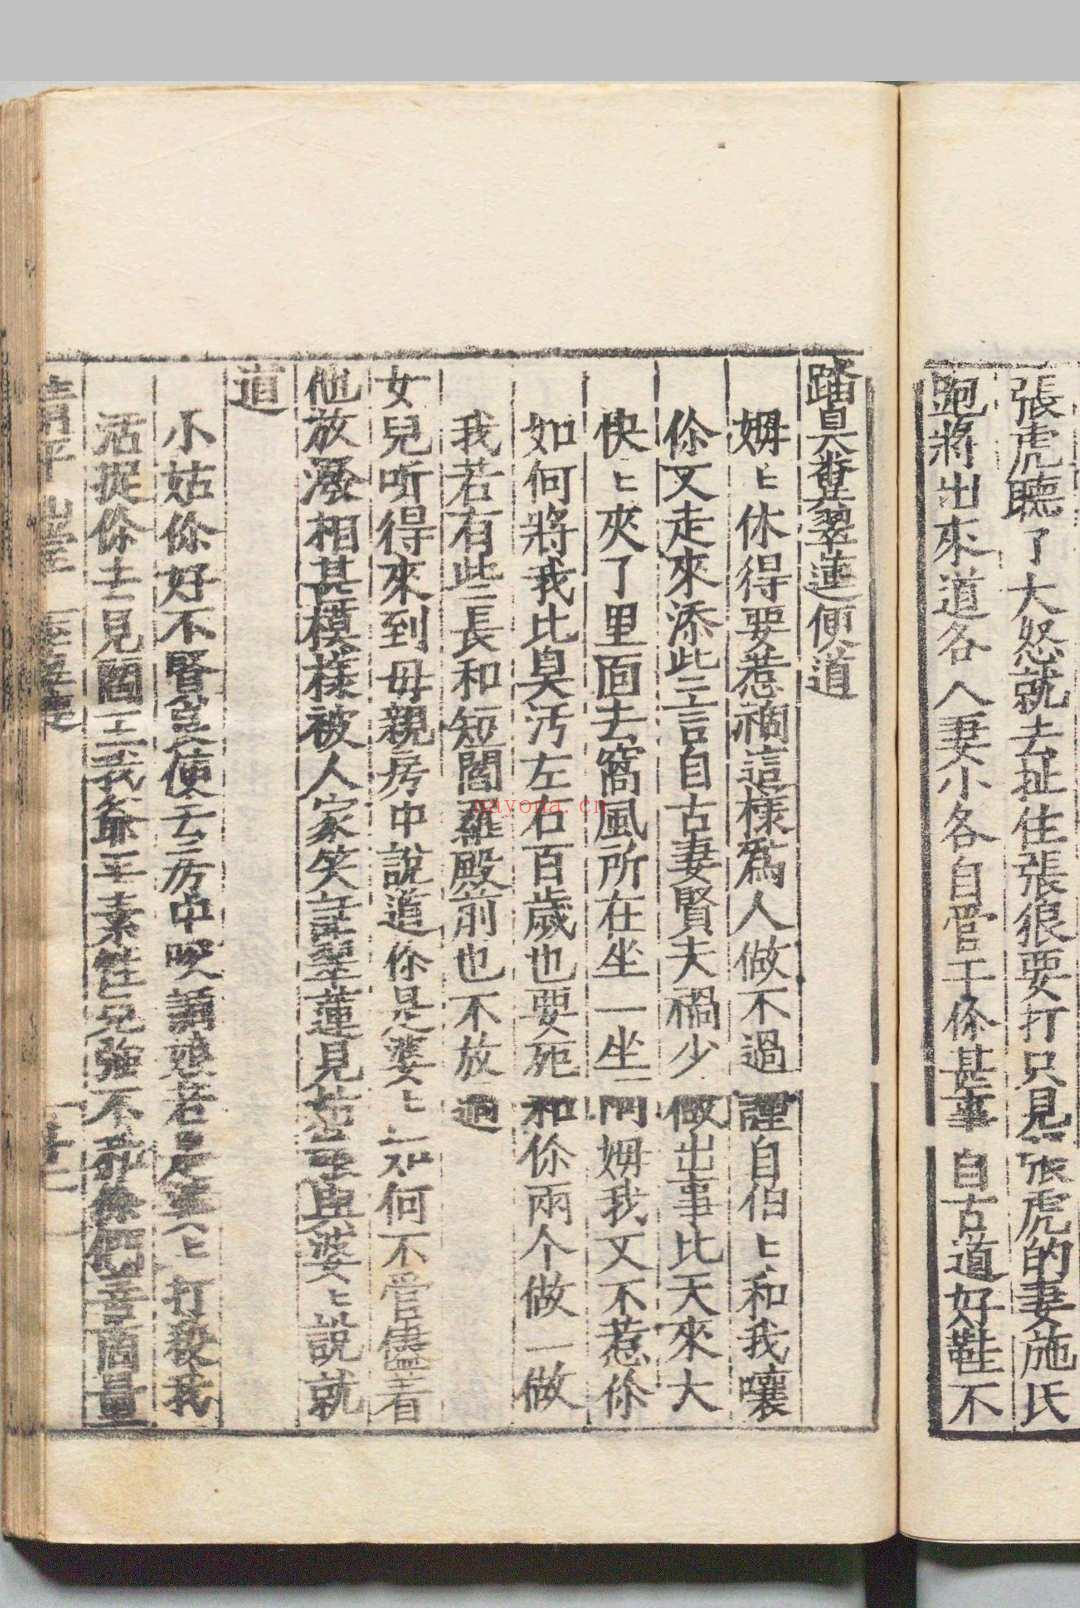 張虎聽了大怒就去扯住張狼要打只見張虎的妻施氏
跑將出來道各人妻小各自管干你甚事自古道好鞋不
踏臭糞翠蓮便道
姆〻休得要惹禍這樣爲人做不過
自伯〻和我嚷
你又走來添些言自古妻賢夫禍少
做出事比天來大
快〻夾了里面去窩風所在坐一坐
阿姆我又不惹你
如何將我比臭汚左右百歲也要死
和你兩个做一做
我若有些長和短閻羅殿前也不放
過
女兒听得來到母親房中說道你是婆〻如何不管儘着
他放潑相甚模樣被人家笑話翠蓮見姑〻與婆〻說就
道
小姑你好不賢
便去房中唆
娘若是
打殺我
活捉你去見閻王我爺平素性兒強不
你們善商量
清平山堂
nayona.cn